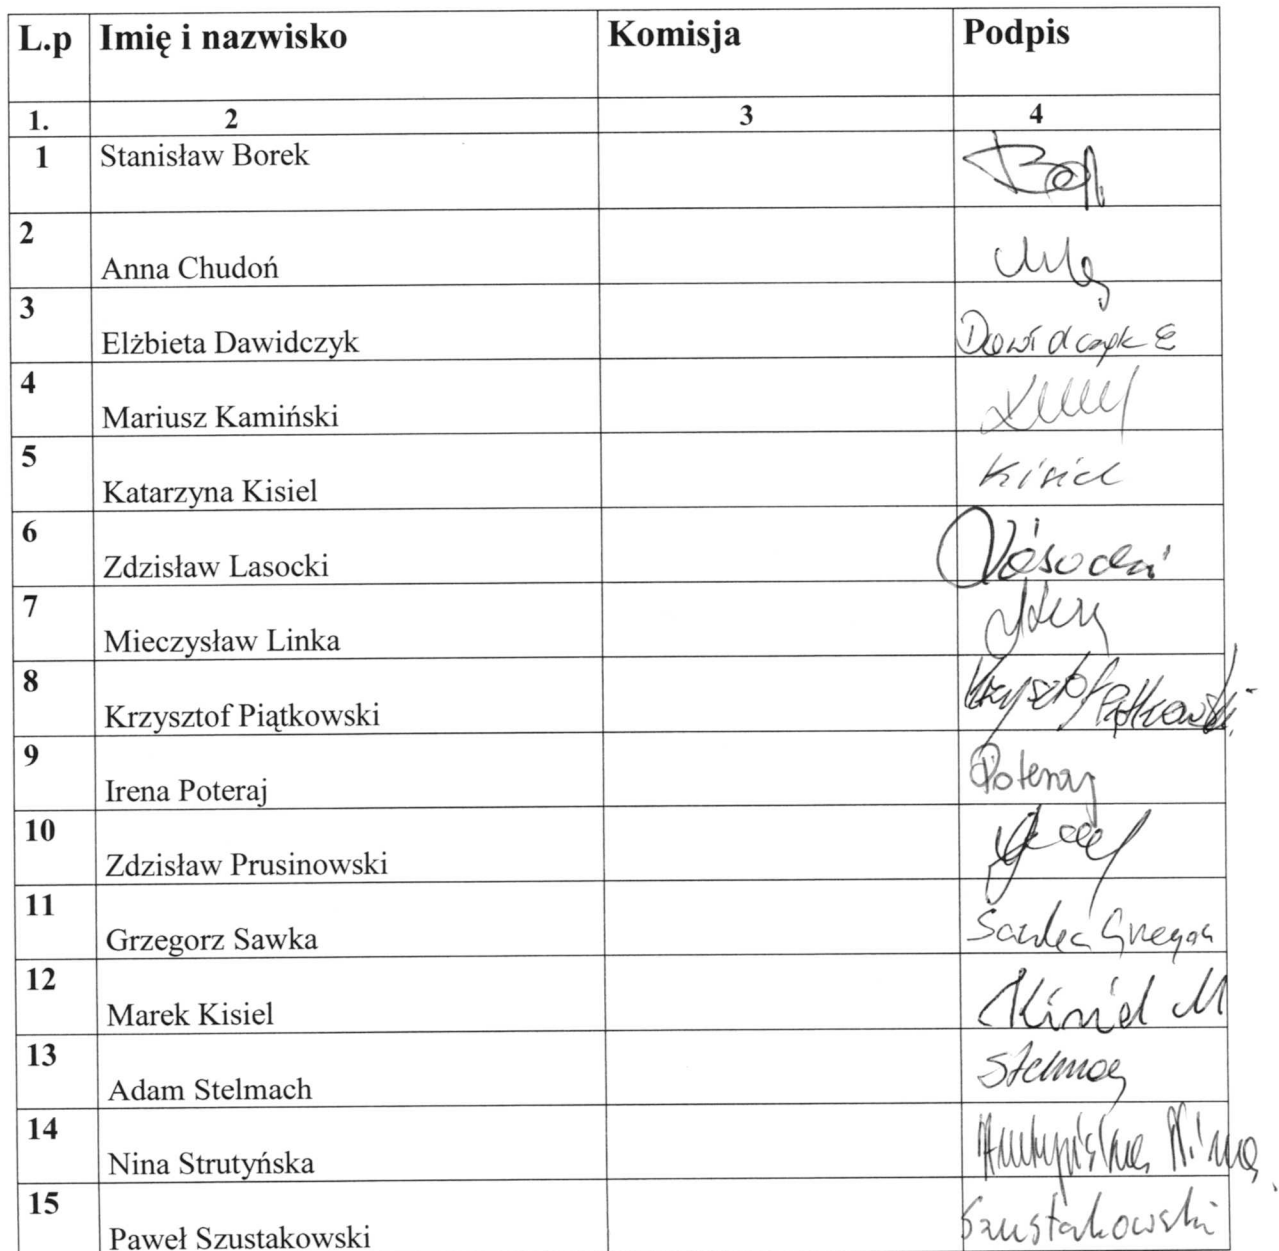 L.p Imię i nazwisko Komisja Podpis
1. 2 3 4
1 Stanisław Borek
2 Anna Chudoń
3 Elżbieta Dawidczyk Dawidczyk E
4 Mariusz Kamiński
5 Katarzyna Kisiel Kisiel
6 Zdzisław Lasocki
7 Mieczysław Linka
8 Krzysztof Piątkowski Krzysztof Piątkowski
9 Irena Poteraj Poteraj
10 Zdzisław Prusinowski
11 Grzegorz Sawka Sawka Grzegorz
12 Marek Kisiel Kisiel M
13 Adam Stelmach Stelmach
14 Nina Strutyńska Strutyńska Nina
15 Paweł Szustakowski Szustakowski